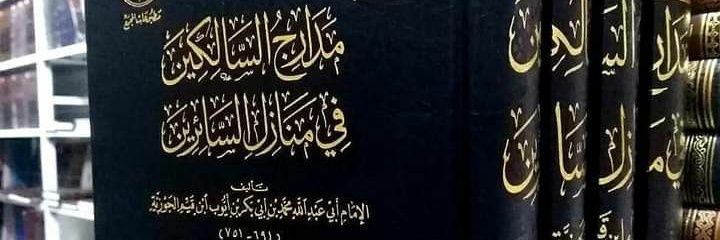 مطبوعات المجمع
مَدَارِجُ السَّالِكِين
فِي مَنَازِلِ السَّائِرِين
تأليف
الإمام أبي عبد الله محمد بن أبي بكر بن أيوب ابن قيم الجوزية
(٦٩١ - ٧٥١)